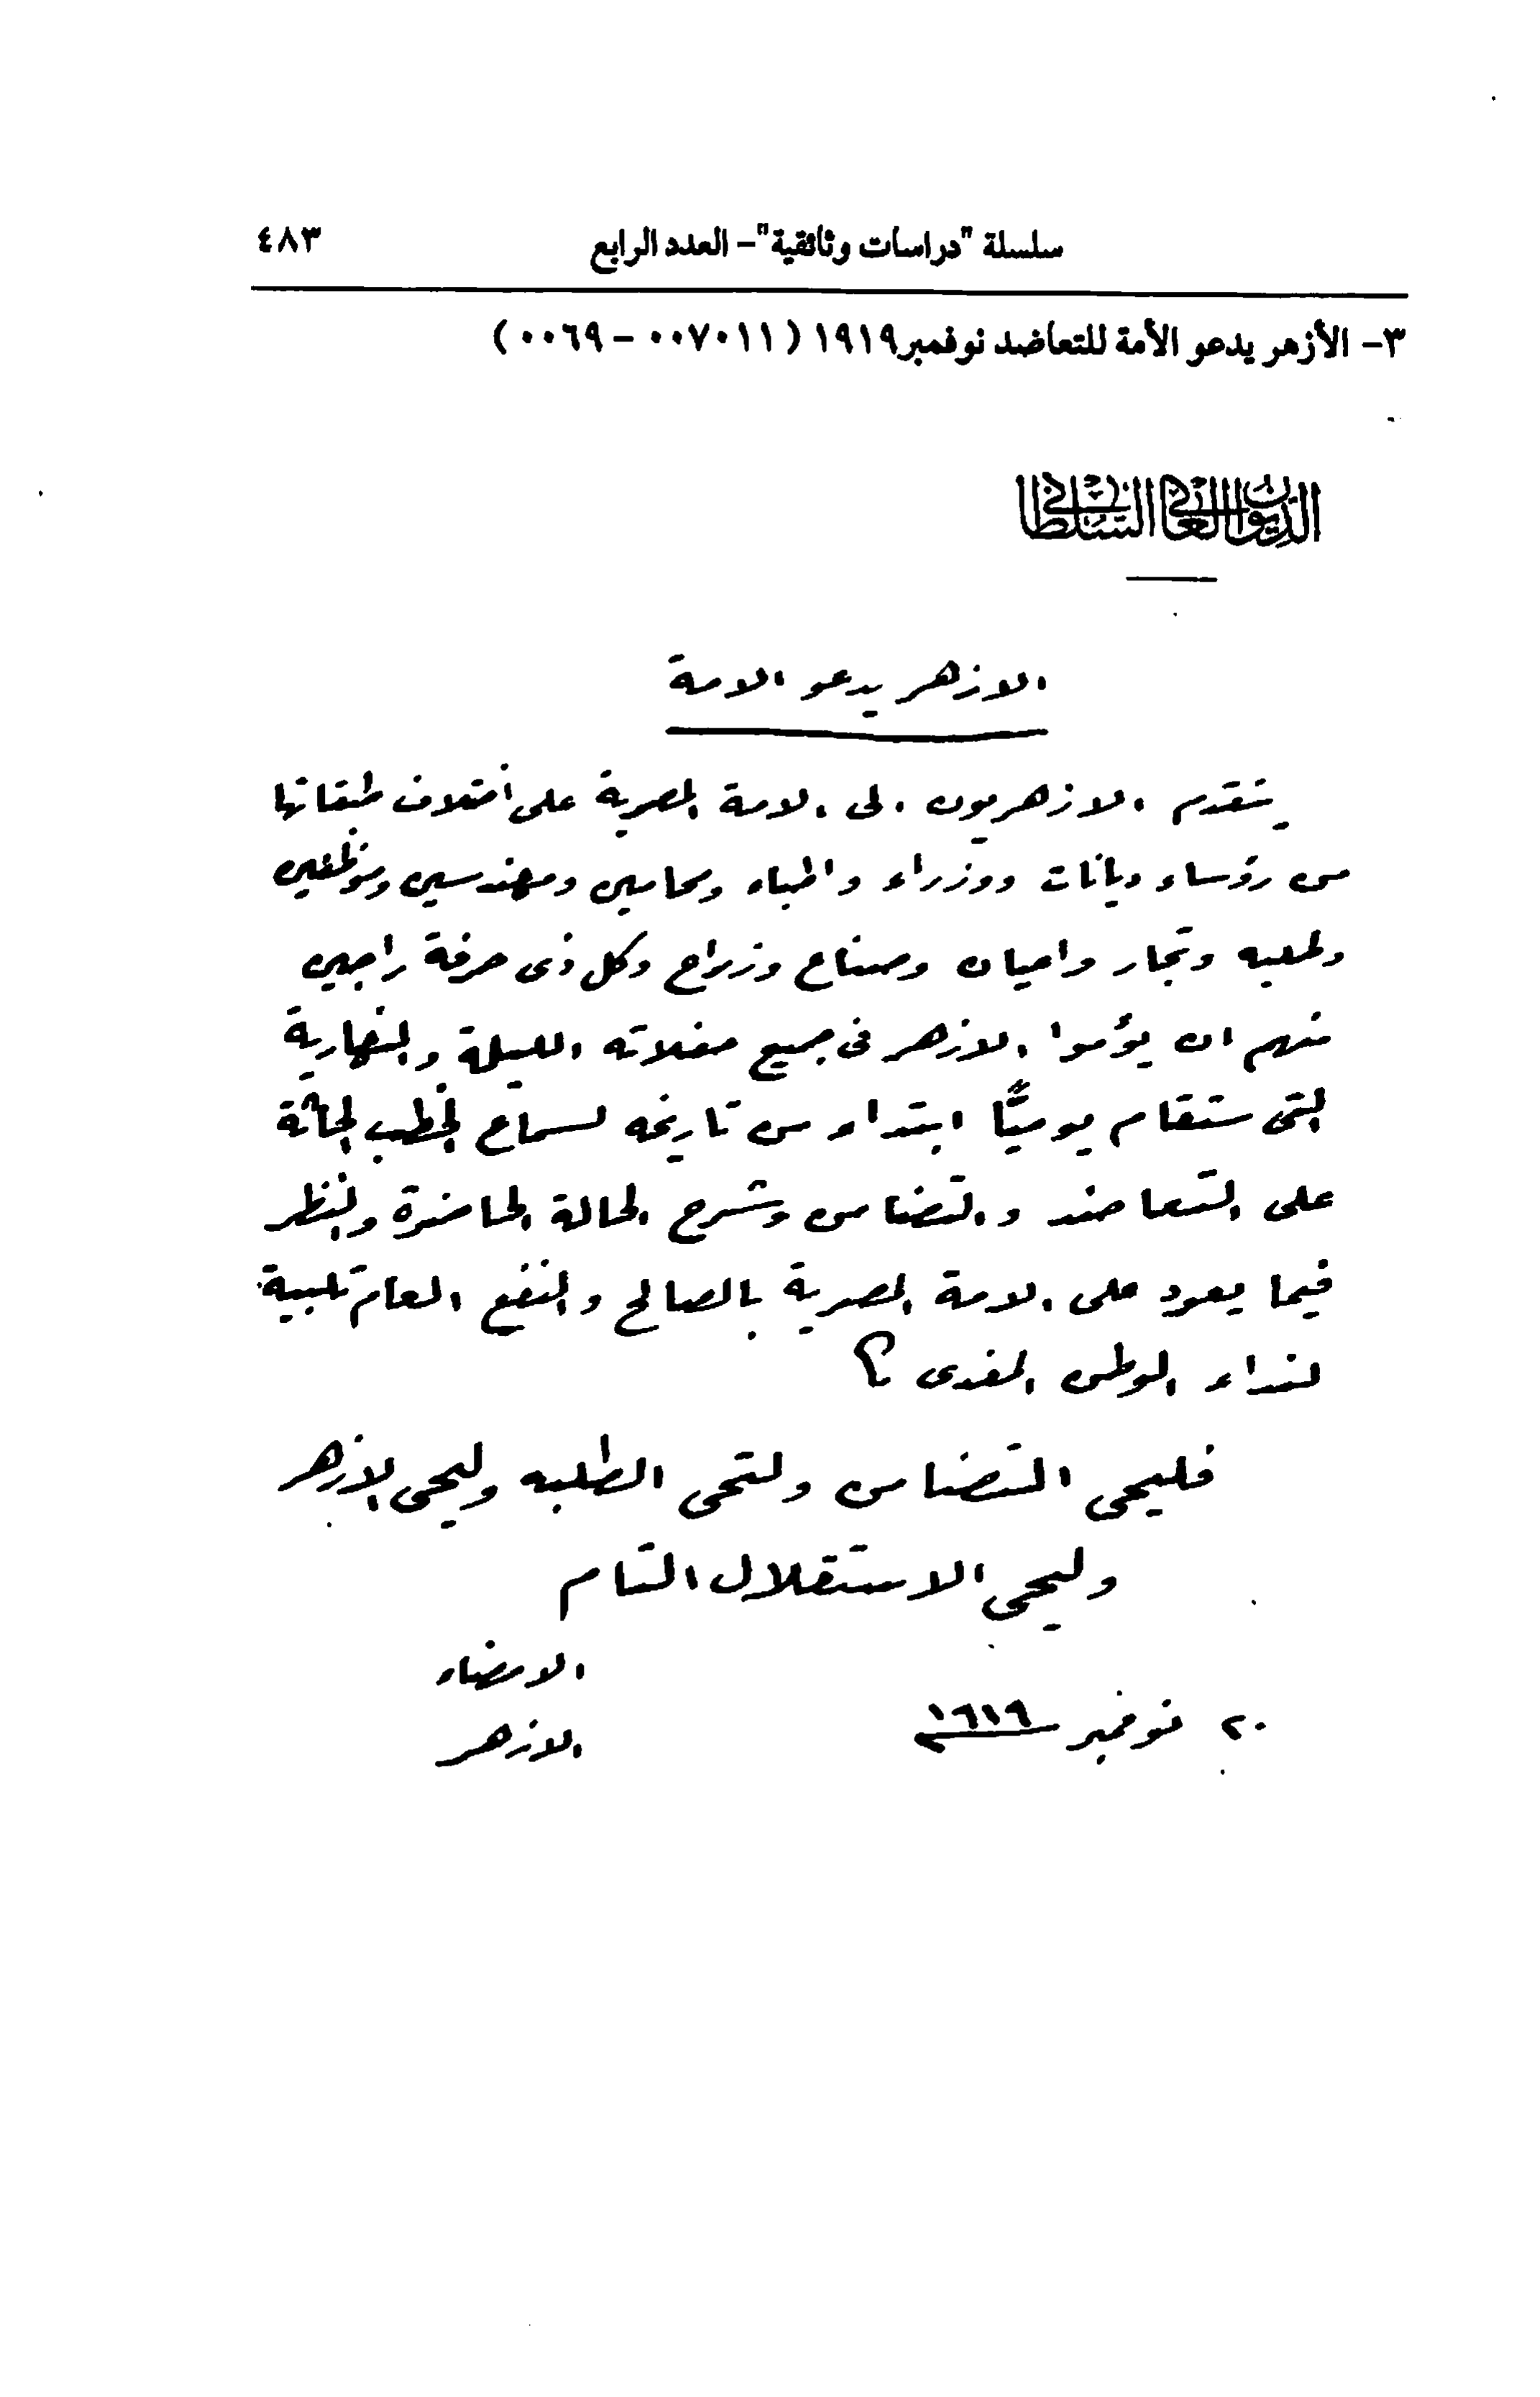 سلسلة "دراسات وثائقية" – العدد الرابع ٤٨٣
٣- الأزهر يدعو الأمة للتعاضد نوفمبر ١٩١٩ (٠٠٧٠١١ – ٠٠٦٩)
الديوان العالي السلطاني
الازهر يدعو الامة
يتقدم الازهريون الى الامة المصرية على أختلاف طبقاتها
من رؤساء ديانات ووزراء واطباء ومحامين ومهندسين وموظفين
وطلبه وتجار واعيان وصناع وزراع وكل ذى حرفة راجين
منهم ان يؤموا الازهر فى جميع حفلاته الليلة والنهارية
التى ستقام يوميًّا ابتداء من تاريخه لسماع الخطب الحاثة
على التعاضد والتضامن وشرح الحالة الحاضرة والنظر
فيما يعود على الامة المصرية بالصالح والنفع العام تلبية
لنداء الوطن المفدى
فليحى التضامن ولتحى الطلبه وليحى الازهر
وليحى الاستقلال التام
الامضاء
٢٠ نوفمبر ١٩١٩
الازهر